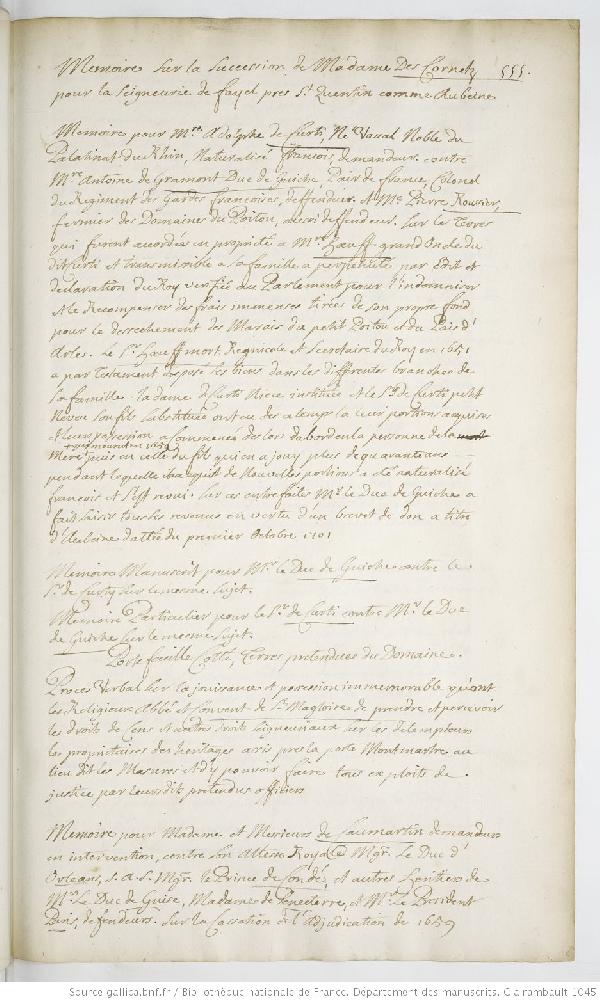 Memoires sur la succession de Madame Des Cornetz 555.
pour la seigneurie de fayel pres St Quentin comme Aubeine
Memoire pour Mre Adolphe de Curti, Né Vassal Noble du
Palatinat du Rhin, Naturalisé françois, demandeur contre
Mre Antoine de Gramont Duc de Guiche Pair de france, Colonel
du Regiment des Gardes francoises, deffendeur. Et Me Pierre Rousier,
fermier des Domaines du Poitou, aussi deffendeur. Sur les Terres
qui furent accordées en propriété a Mr hœuff grand Oncle du
dit Curti et transmissible a sa famille a perpetuité par Edit et
declaration du Roy verifié au Parlement pour l'indemniser
et le Recompenser des frais immenses tirées de son propre fond
pour le dessechement des Marais du petit Poitou et du Païs d'
Arles. le Sr. hœuff mort Regnicole et Secretaire du Roy en 1651
a par testament disposé ses biens dans les differentes branches de
sa famille. la dame de Curti Niece instituée et le Sr de Curti petit
Neveu son fils substitué ont eu des ce temps la leur portions acquises
et leur possession a commencé des lors d'abord en la personne de la
Mere puis en celle du fils qui en a jouy plus de quarante ans
pendant lesquelle il a acquis de Nouvelles portions a eté naturalisé
françois et s'est marié. sur ces entrefaites Mr le Duc de Guiche a
fait saisir tous les revenus en vertu d'un brevet de don a titre
d'Aubaine datté du premier Octobre 1701
Memoire Manuscrit pour Mr le Duc de Guiche contre le
Sr. de Curty sur le mesme sujet.
Memoire Particulier pour le Sr de Curti contre Mr. le Duc
de Guiche sur le mesme sujet.
Porte feuille Cotté, Terres pretendues du Domaine.
Proces Verbal sur la jouissance et possession immemorable qu'ont
les Religieux Abbé et Convent de St Magloire de prendre et percevoir
les droits de Cens et autres droits seigneuriaux sur les detempteurs
les proprietaires des heritages assis pres la porte Montmartre au
lieu dit les Masures et d'y pouvoir faire tous exploits de
justice par leursdits pretendus officiers
Memoire pour Madame et Messieurs de Caumartin demandeurs
en intervention, contre Son Altesse Royale Mgr. Le Duc d'
Orleans, S. A. S. Mgr. le Prince de Condé, et autres
Mr. Le Duc de Guise, Madame de Senecterre, et Mr. Le President
Pinis, defendeurs. Sur la Cassation de l'adjudication de 1659
Source gallica.bnf.fr / Bibliothèque nationale de France. Département des manuscrits. Clairambault 1045